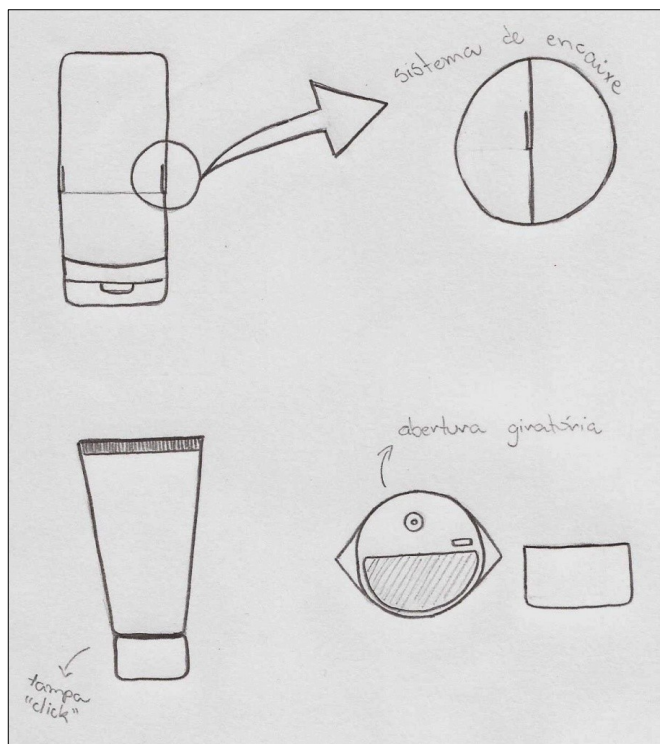 sistema de encaixe
abertura giratória
tampa
"click"